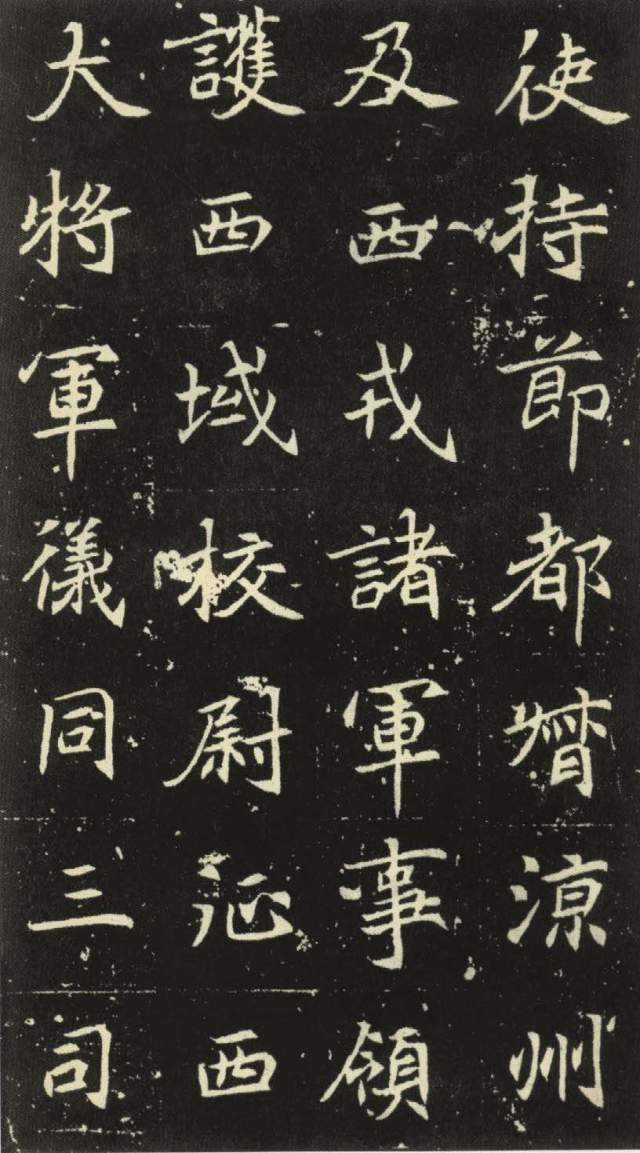 使持節都督涼州
及西戎諸軍事領
護西域校尉沁西
大將軍儀同三司